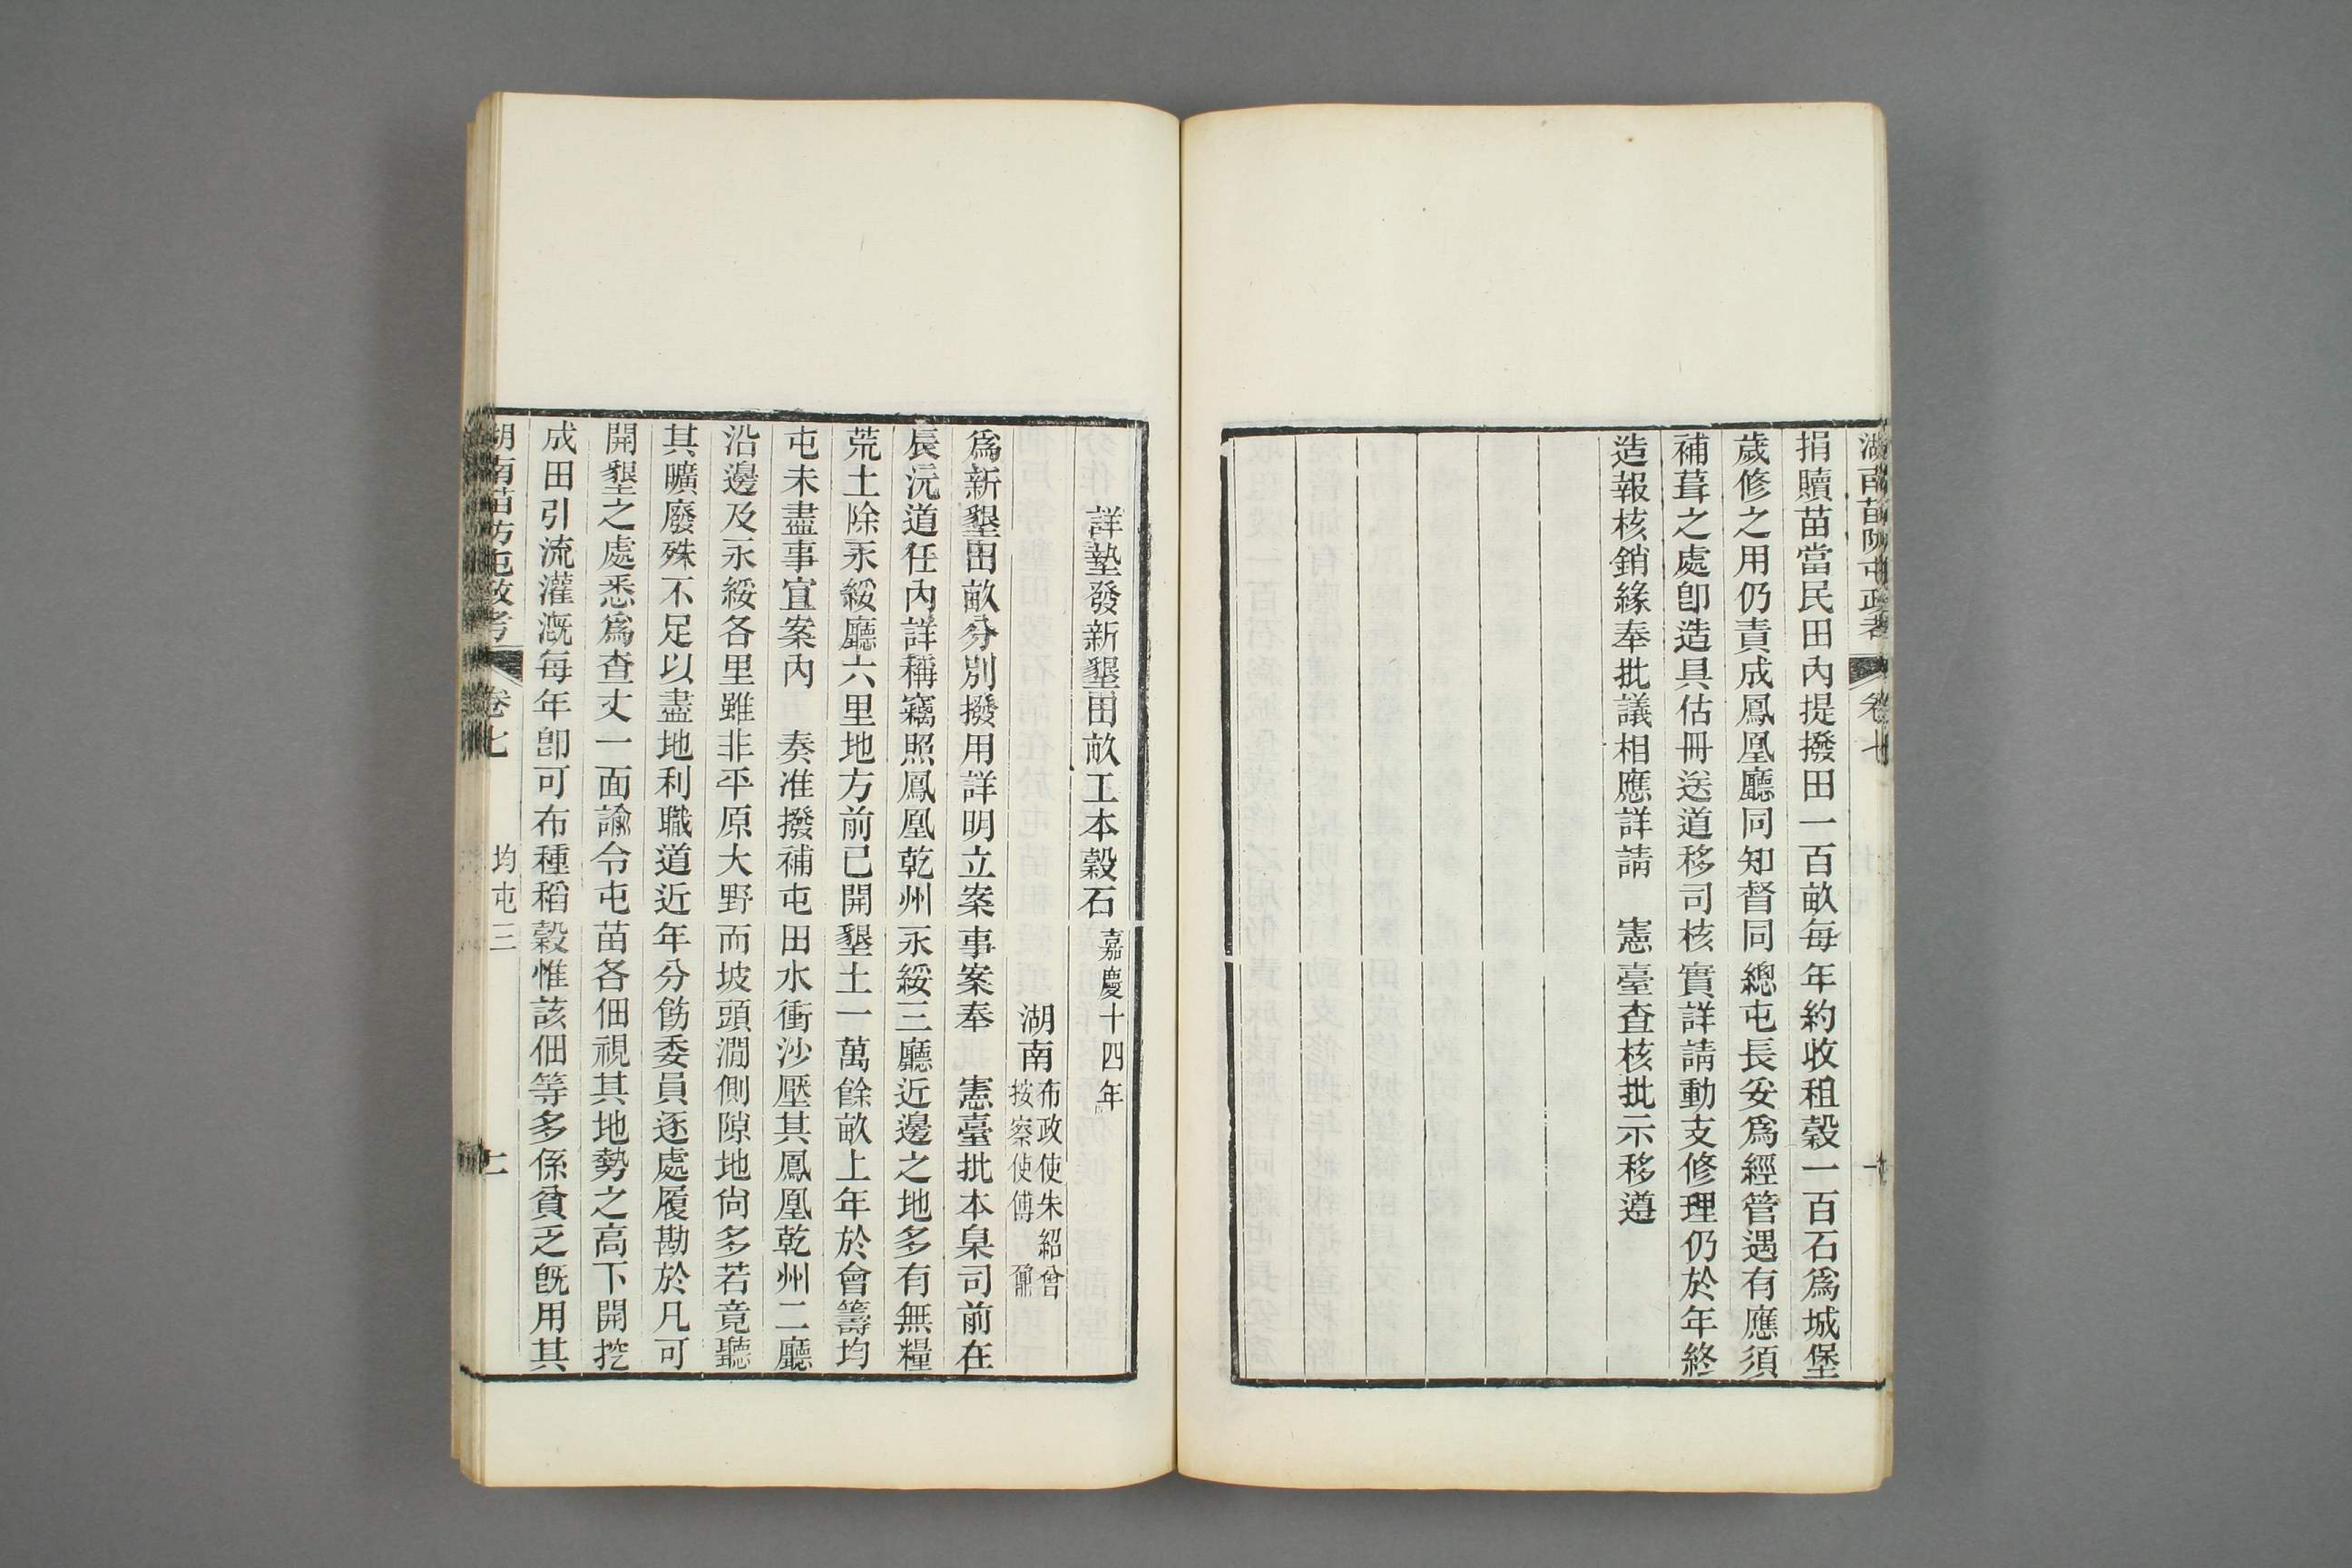 湖南苗防屯政考 卷七
捐贖苗當民田內提撥田一百畝每年約收租穀一百石爲城堡
歲修之用仍責成鳳凰廳同知督同總屯長妥爲經管遇有應須
補葺之處卽造具估冊送道移司核實詳請動支修理仍於年終
造報核銷緣奉批議相應詳請 憲臺查核批示移遵
詳墊發新墾田畝工本穀石 嘉慶十四年
湖南布政使朱紹曾
按察使傅鼐
爲新墾田畝分別撥用詳明立案事案奉 憲臺批本臬司前在
辰沅道任內詳稱竊照鳳凰乾州永綏三廳近邊之地多有無糧
荒土除永綏廳六里地方前已開墾土一萬餘畝上年於會籌均
屯未盡事宜案內 奏准撥補屯田水衝沙壓其鳳凰乾州二廳
沿邊及永綏各里雖非平原大野而坡頭澗側隙地尙多若竟聽
其曠廢殊不足以盡地利職道近年分飭委員逐處履勘於凡可
開墾之處悉爲查丈一面諭令屯苗各佃視其地勢之高下開挖
成田引流灌溉每年卽可布種稻穀惟該佃等多係貧乏旣用其
湖南苗防屯政考 卷七 均屯三